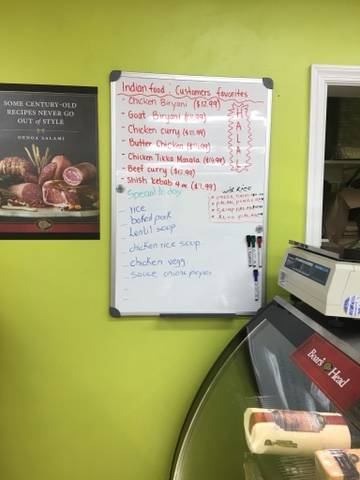 SOME CENTURY-OLD
RECIPES NEVER GO
OUT of STYLE
GENOA SALAMI
Indian food. Customers favorites
- Chicken Biryani ($12.99)
- Goat Biryani
- Chicken curry
- Butter Chicken
- Chicken Tikka Masala ($14.99)
- Beef curry ($12.99)
- Shish kebab 4 oz ($7.99)
HALAL
Special to day
with Rice
- rice
- baked pork
- Lentil soup
- chicken rice soup
- chicken vegg
- sauce onions
Boar's Head